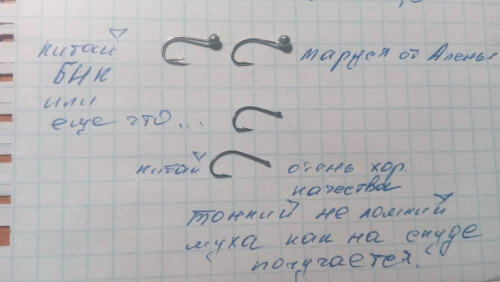 китай
БНК
или
еще что...
маруся от Алены
китай
очень хор.
качества
тонкий не ломкий
муха как на скуде
получается!